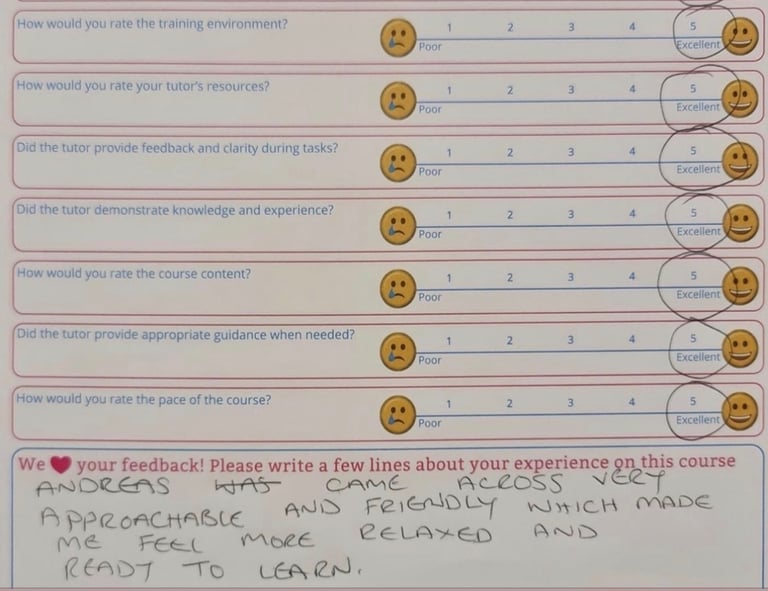 How would you rate the training environment?
1 2 3 4 5
Poor Excellent
How would you rate your tutor's resources?
1 2 3 4 5
Poor Excellent
Did the tutor provide feedback and clarity during tasks?
1 2 3 4 5
Poor Excellent
Did the tutor demonstrate knowledge and experience?
1 2 3 4 5
Poor Excellent
How would you rate the course content?
1 2 3 4 5
Poor Excellent
Did the tutor provide appropriate guidance when needed?
1 2 3 4 5
Poor Excellent
How would you rate the pace of the course?
1 2 3 4 5
Poor Excellent
We ❤ your feedback! Please write a few lines about your experience on this course
ANDREAS HAS CAME ACROSS VERY
APPROACHABLE AND FRIENDLY WHICH MADE
ME FEEL MORE RELAXED AND
READY TO LEARN.